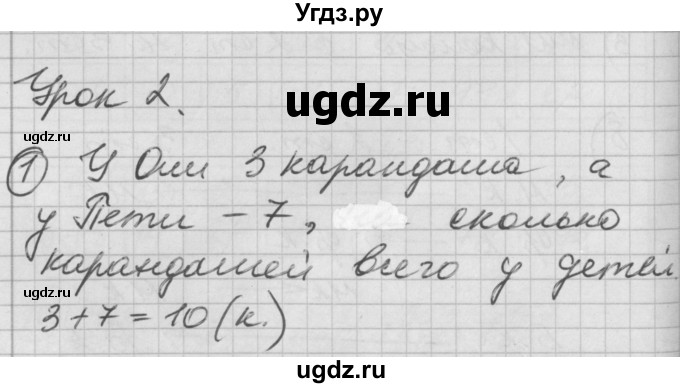 Угдз.ру
Урок 2.
ugdz.ru
ugdz.ru
1 У Оли 3 карандаша, а
у Пети – 7, сколько
карандашей всего у детей.
ugdz.ru
3+7=10 (к.)
ugdz.ru
ugdz.ru